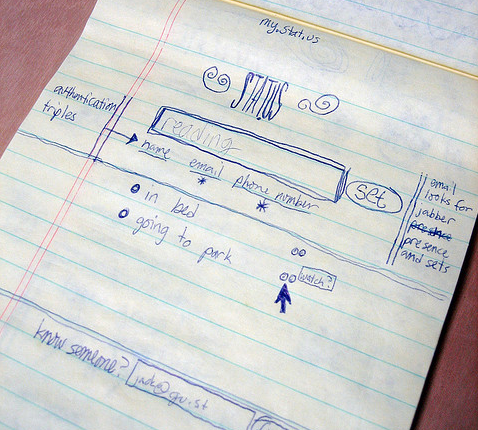 my.stat.us
STATUS
authentication
triples
reading
set
name email phone number
* *
in bed
going to park
email
looks for
jabber
presence
presence
and sets
watch?
know someone?
jack@gu.st